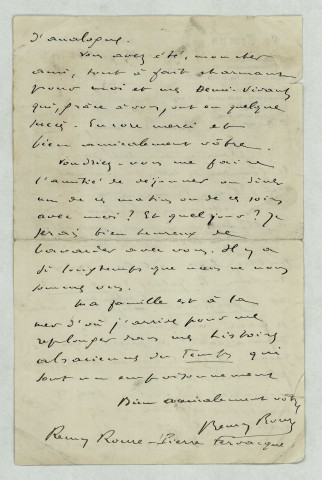 d'analogue.
Vous avez été, mon cher
ami, tout à fait charmant
pour moi et mes Demi-Vivants
qui, grâce à vous, ont eu quelque
succès. Encore merci et
bien amicalement vôtre.
Voudriez-vous me faire
l'amitié de déjeuner ou dîner
un de ces matins ou de ces soirs
avec moi ? Et quel jour ? Je
serais bien heureux de
bavarder avec vous. Il y a
si longtemps que nous ne nous
sommes vus.
Ma famille est à la
mer d'où j'arrive pour me
replonger dans mes histoires
alsaciennes du Temps qui
sont un empoisonnement
Bien amicalement vôtre
Remy Roure
Remy Roure - Pierre Fervacque